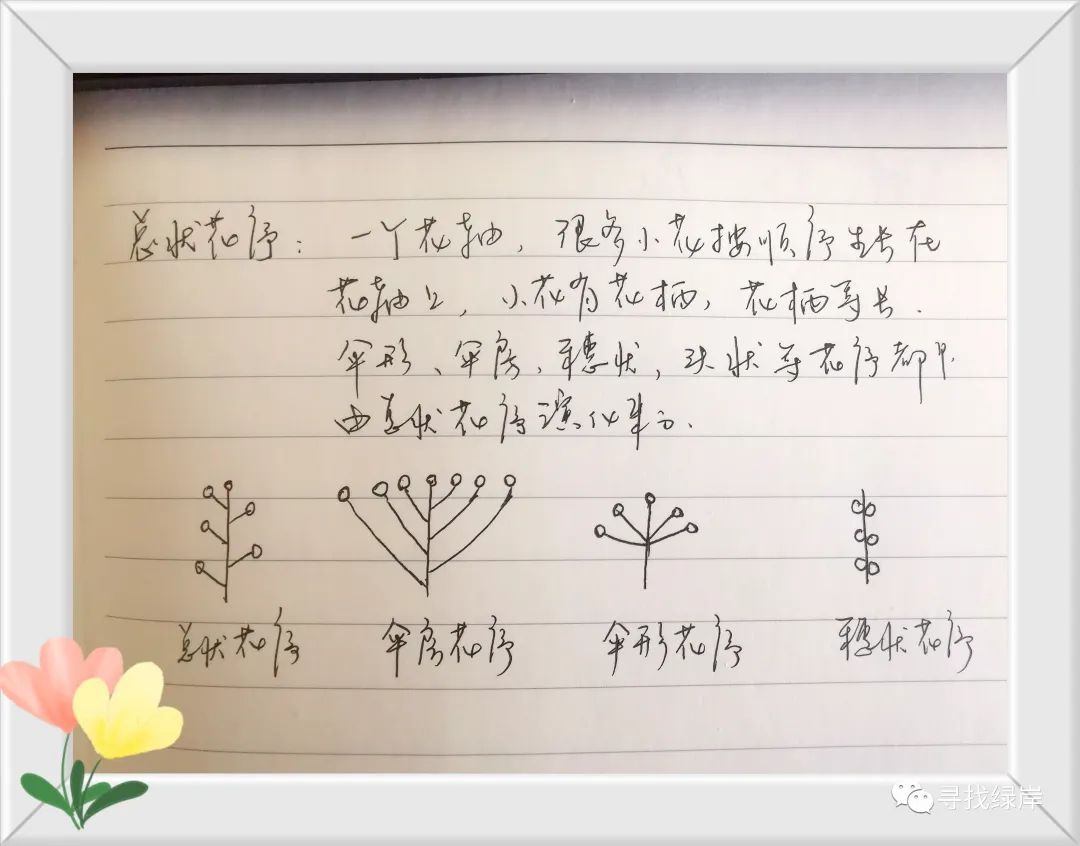 总状花序：一个花轴，很多小花按顺序生长在
花轴上，小花有花柄，花柄等长．
伞形、伞房、穗状，头状等花序都可
由总状花序演化来的．
总状花序 伞房花序 伞形花序 穗状花序
寻找绿岸